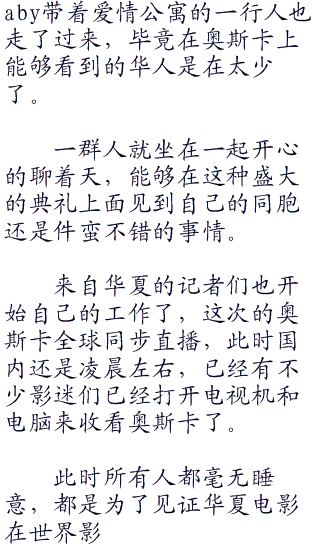 aby带着爱情公寓的一行人也
走了过来，毕竟在奥斯卡上
能够看到的华人是在太少
了。
一群人就坐在一起开心
的聊着天，能够在这种盛大
的典礼上面见到自己的同胞
还是件蛮不错的事情。
来自华夏的记者们也开
始自己的工作了，这次的奥
斯卡全球同步直播，此时国
内还是凌晨左右，已经有不
少影迷们已经打开电视机和
电脑来收看奥斯卡了。
此时所有人都毫无睡
意，都是为了见证华夏电影
在世界影